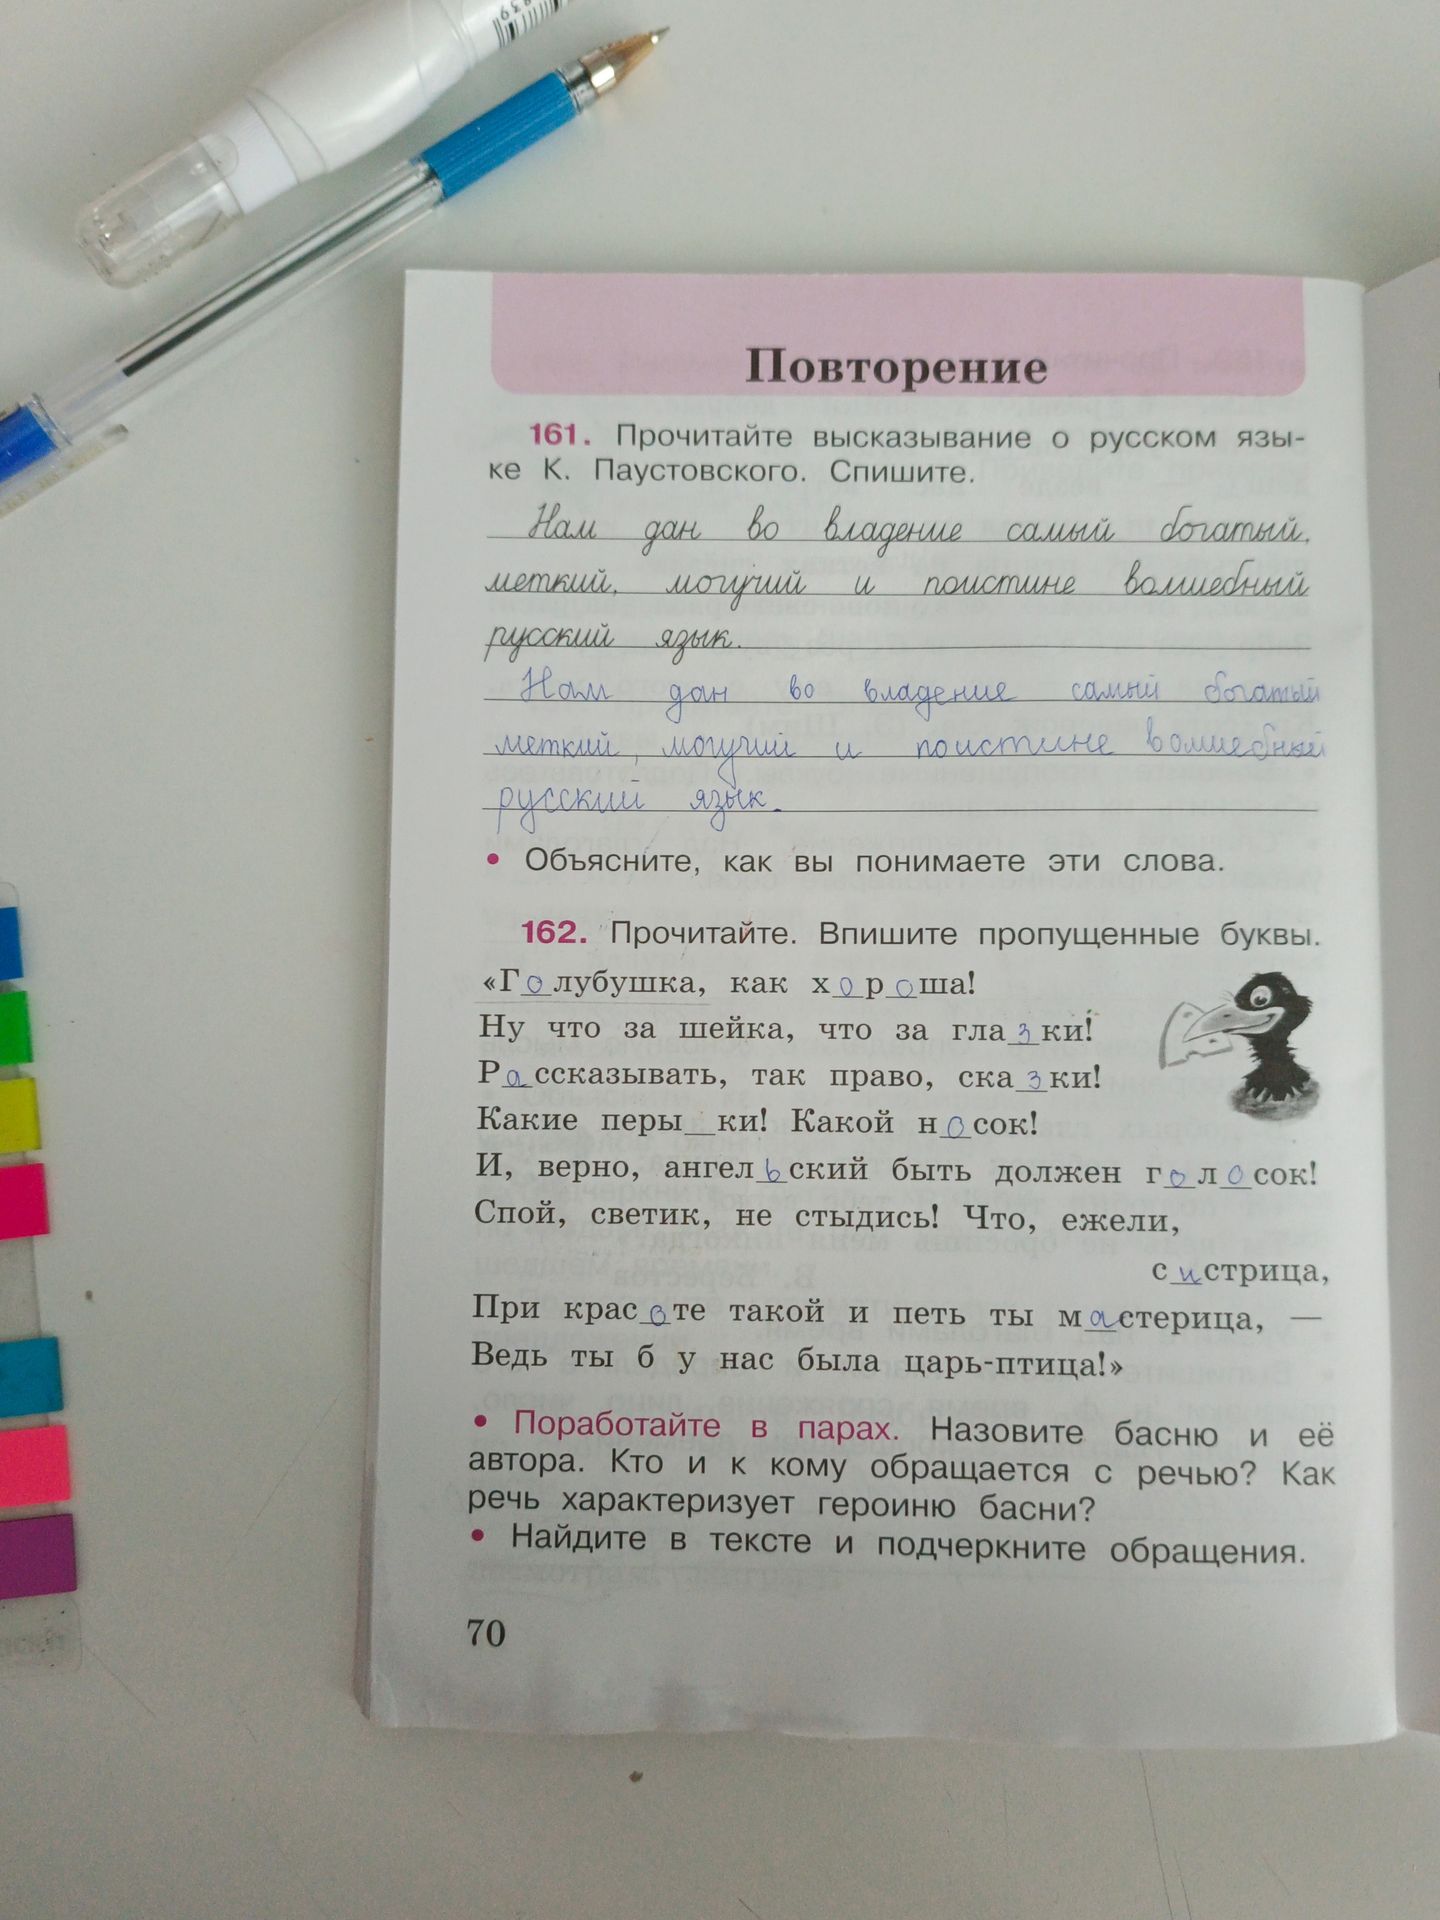 Повторение
161. Прочитайте высказывание о русском язы-
ке К. Паустовского. Спишите.
Нам дан во владение самый богатый,
меткий, могучий и поистине волшебный
русский язык.
Нам дан во владение самый богатый
меткий, могучий и поистине волшебный
русский язык.
• Объясните, как вы понимаете эти слова.
162. Прочитайте. Впишите пропущенные буквы.
«Голубушка, как хороша!
Ну что за шейка, что за глазки!
Рассказывать, так право, сказки!
Какие перы_ки! Какой носок!
И, верно, ангельский быть должен голосок!
Спой, светик, не стыдись! Что, ежели,
систрица,
При красоте такой и петь ты мастерица, —
Ведь ты б у нас была царь-птица!»
• Поработайте в парах. Назовите басню и её
автора. Кто и к кому обращается с речью? Как
речь характеризует героиню басни?
• Найдите в тексте и подчеркните обращения.
70